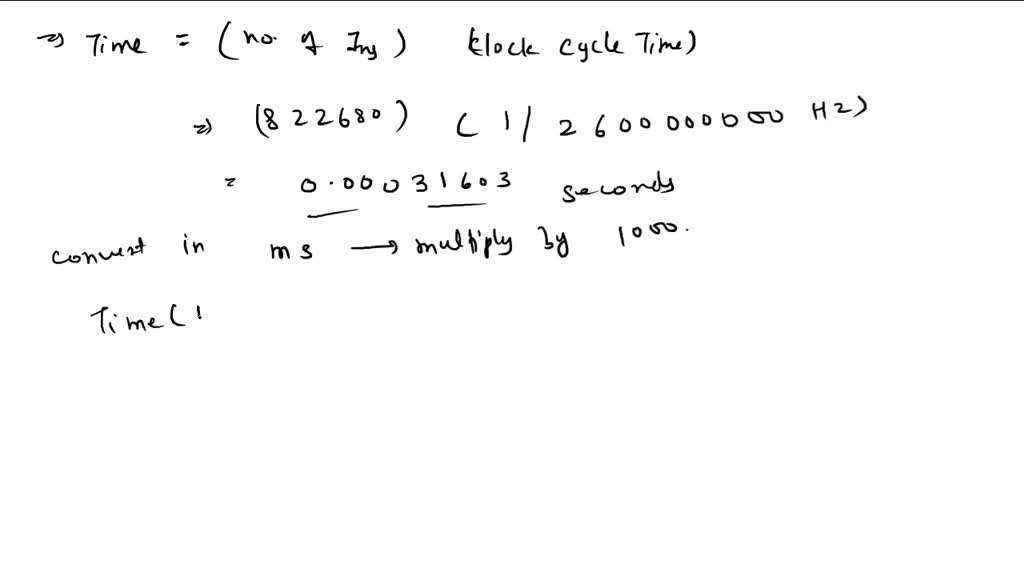 ⇒ Time = (no. of Ins) (clock cycle Time)
⇒ (822680) (1/2600000000 Hz)
= 0.00031603 seconds
convert in ms → multiply by 1000.
Time(